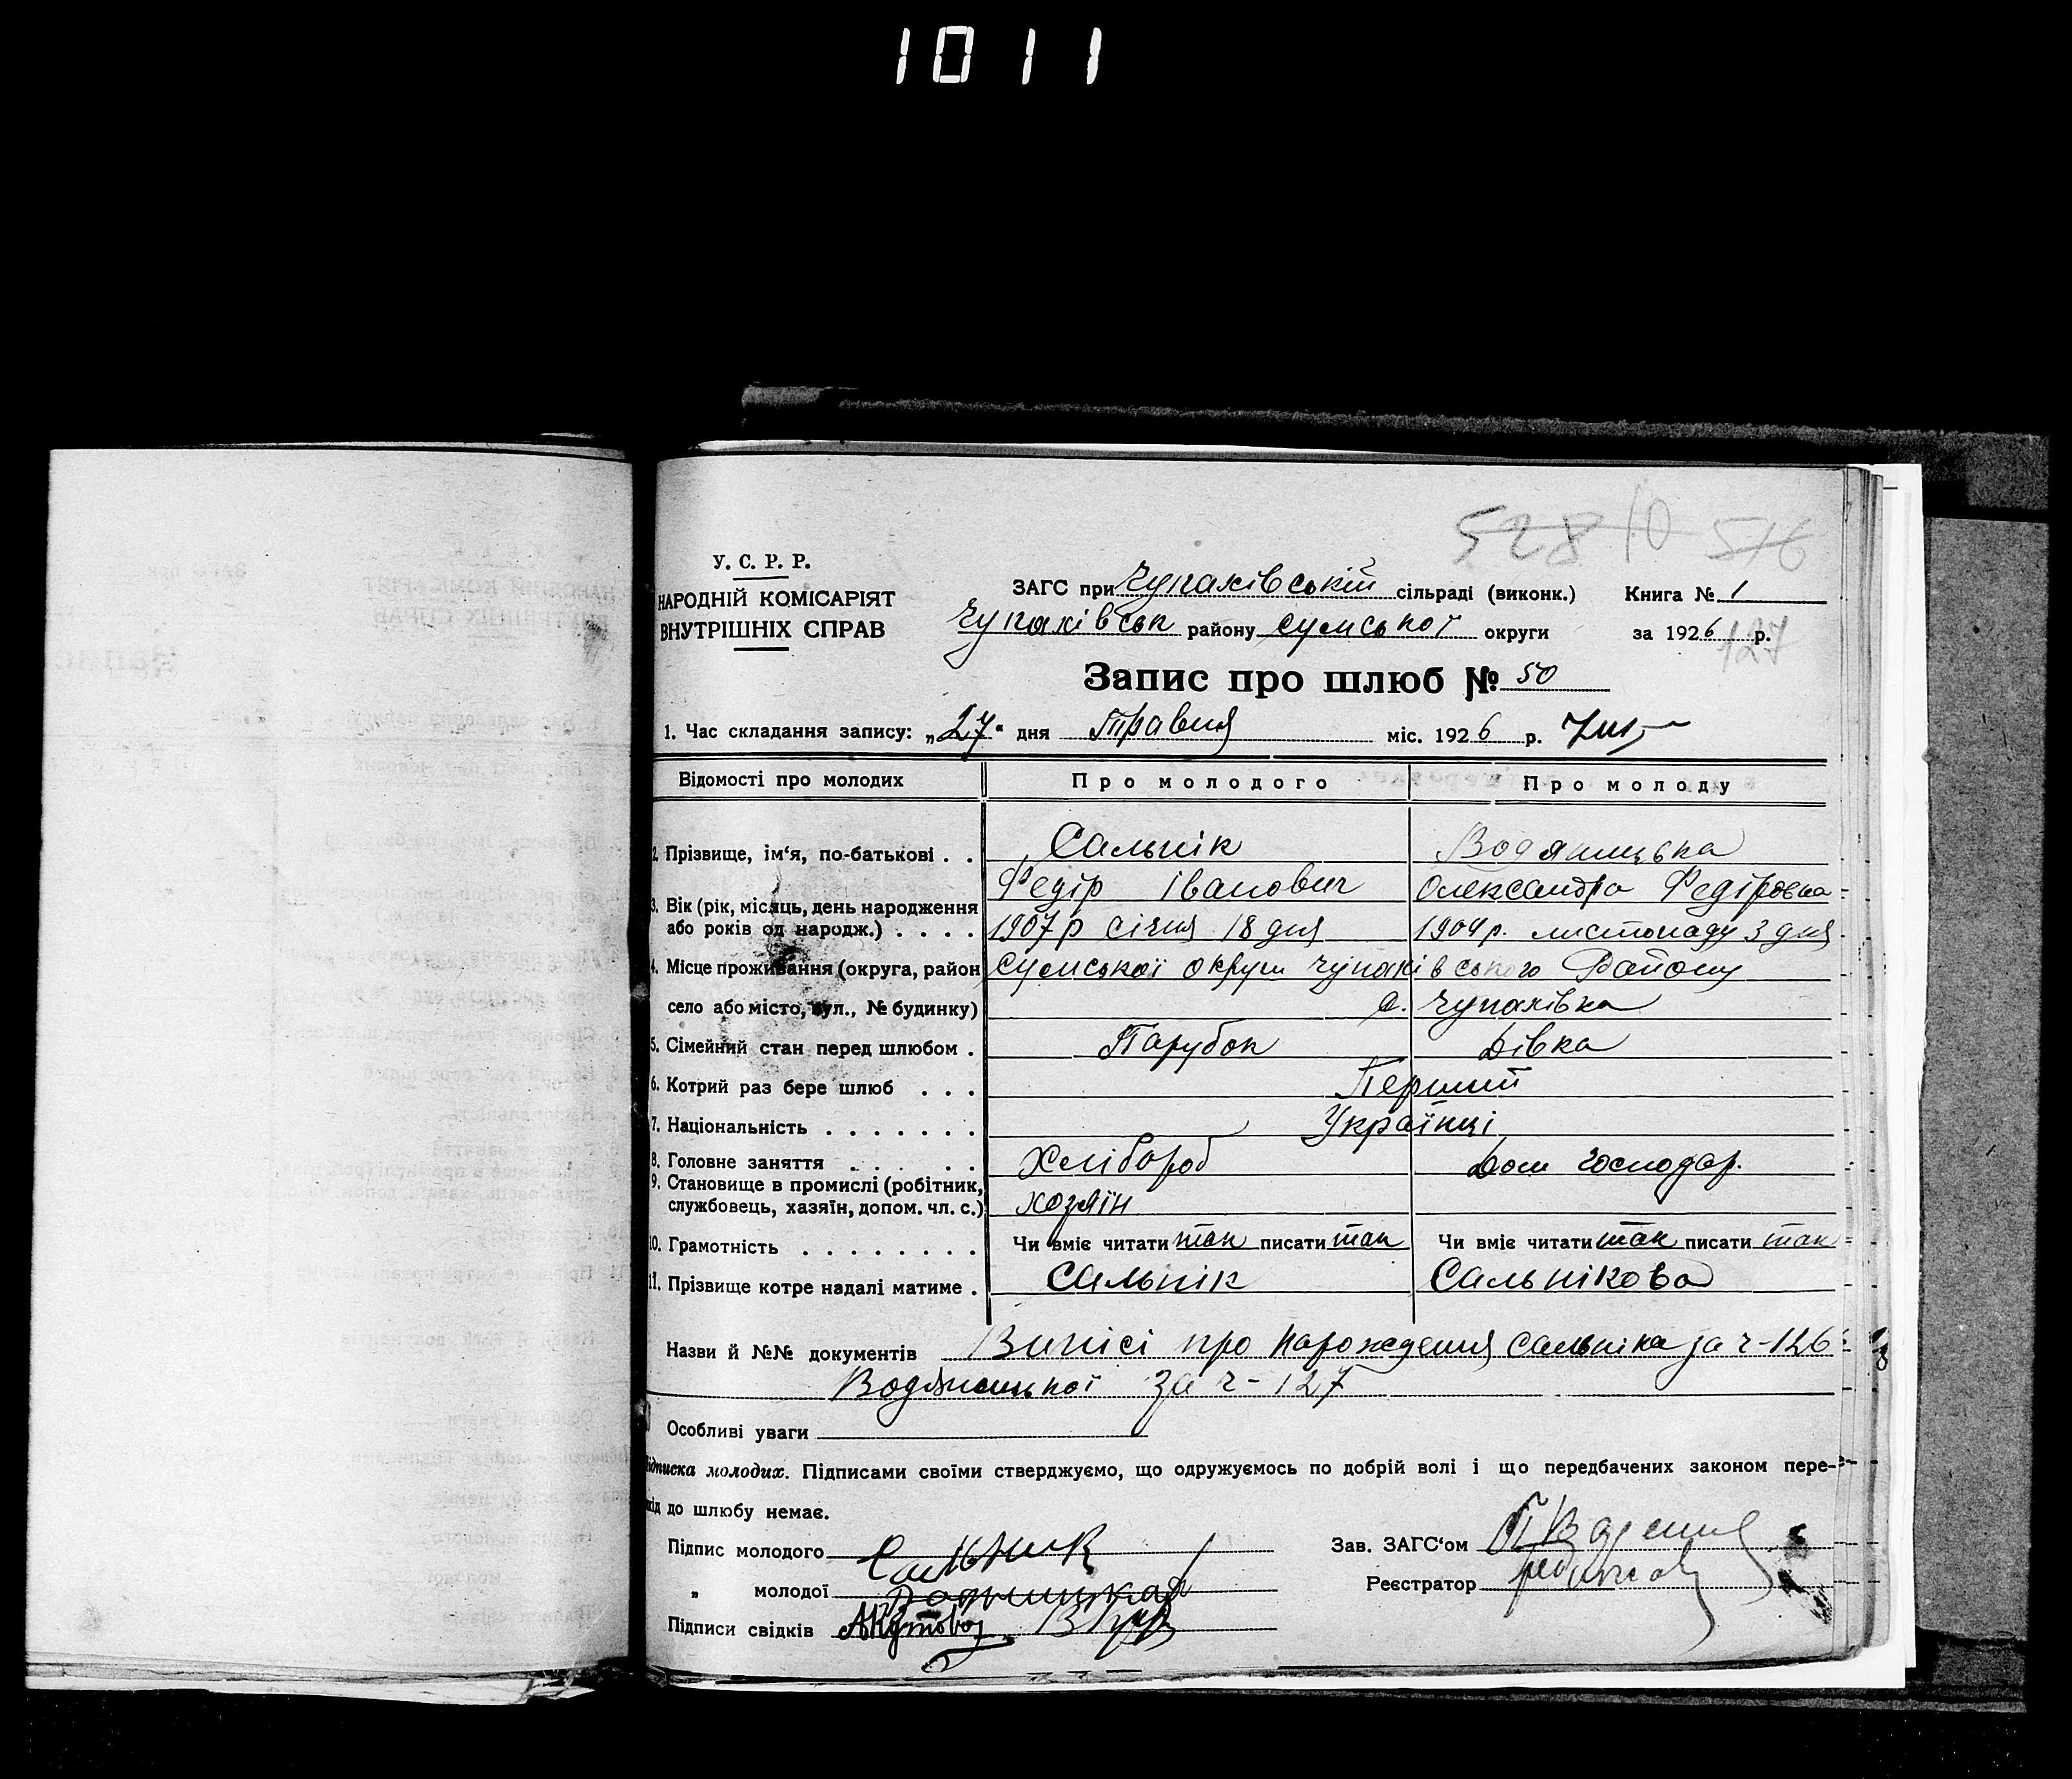 1011
528 10 516
У. С. Р. Р.
НАРОДНІЙ КОМІСАРІЯТ
ВНУТРІШНІХ СПРАВ
ЗАГС при Чупахівській сільраді (виконк.) Книга № 1
Чупахівськ району Сумської округи за 1926 р.
127
Запис про шлюб № 50
1. Час складання запису: „27“ дня Травня міс. 1926 р.
Відомості про молодих Про молодого Про молоду
2. Прізвище, ім‘я, по-батькові . . Сальнік Водяницька
Федір Іванович Олександра Федіровна
3. Вік (рік, місяць, день народження
або років од народж.) . . . . 1907 р січня 18 дня 1904 р. листопаду 3 дня
4. Місце проживання (округа, район Сумської округи Чупахівського Району
село або місто, вул., № будинку) с. Чупахівка
5. Сімейний стан перед шлюбом . Парубок Дівка
6. Котрий раз бере шлюб . . . Перший
7. Національність . . . . . . . Українці
8. Головне заняття . . . . . Хлібороб Дом господар.
9. Становище в промислі (робітник,
службовець, хазяїн, допом. чл. с.) хозяїн
10. Грамотність . . . . . . . . Чи вміє читати так писати так Чи вміє читати так писати так
11. Прізвище котре надалі матиме . Сальнік Сальнікова
Назви й №№ документів Виписі про народження Сальніка за ч-126
Водяницької за ч-127
Особливі уваги
Підписка молодих. Підписами своїми стверджуємо, що одружуємось по добрій волі і що передбачених законом пере-
хід до шлюбу немає.
Підпис молодого Сальник Зав. ЗАГС‘ом
„ молодої Водяницкая Реєстратор
Підписи свідків